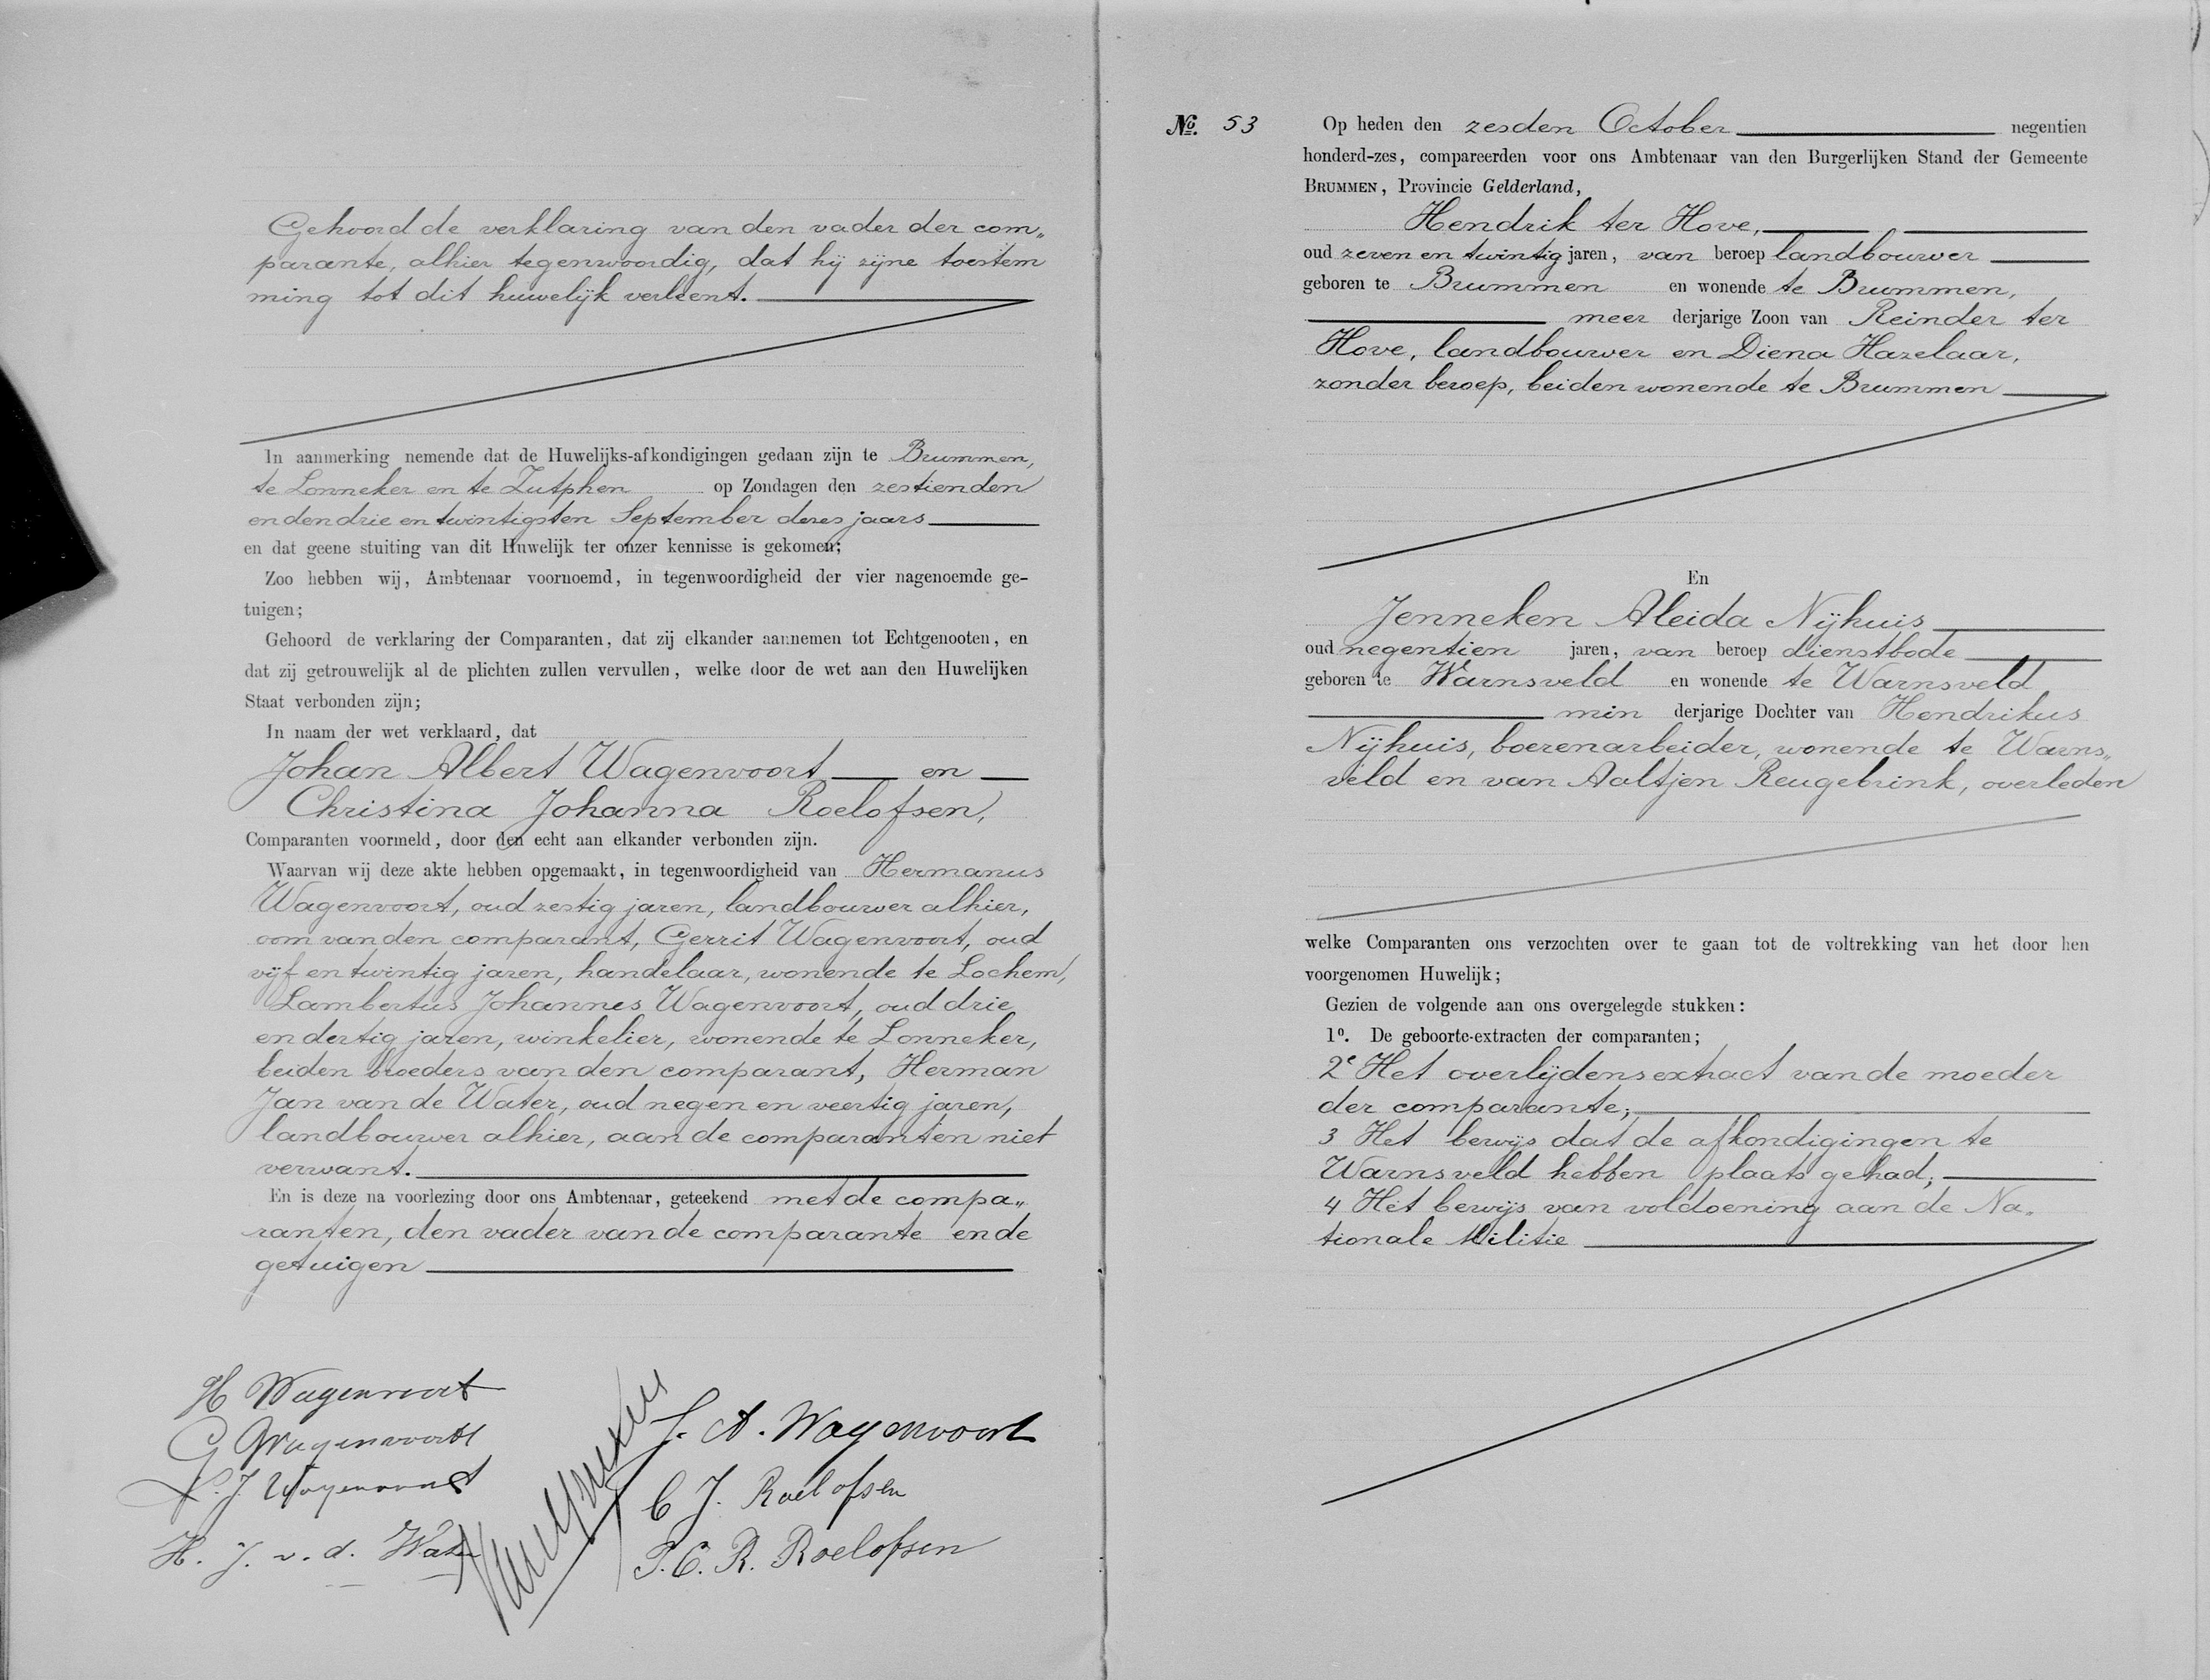 Gehoord de verklaring van den vader der com„
parante, alhier tegenwoordig, dat hij zijne toestem
ming tot dit huwelijk verleent.
In aanmerking nemende dat de Huwelijks-afkondigingen gedaan zijn te Brummen,
te Lonneker en te Zutphen op Zondagen den zestienden
en den drie en twintigsten September dezes jaars
en dat geene stuiting van dit Huwelijk ter onzer kennisse is gekomen;
Zoo hebben wij, Ambtenaar voornoemd, in tegenwoordigheid der vier nagenoemde ge-
tuigen;
Gehoord de verklaring der Comparanten, dat zij elkander aannemen tot Echtgenooten, en
dat zij getrouwelijk al de plichten zullen vervullen, welke door de wet aan den Huwelijken
Staat verbonden zijn;
In naam der wet verklaard, dat
Johan Albert Wagenvoort en
Christina Johanna Roelofsen,
Comparanten voormeld, door den echt aan elkander verbonden zijn.
Waarvan wij deze akte hebben opgemaakt, in tegenwoordigheid van Hermanus
Wagenvoort, oud zestig jaren, landbouwer alhier,
oom van den comparant, Gerrit Wagenvoort, oud
vijf en twintig jaren, handelaar, wonende te Lochem,
Lambertus Johannes Wagenvoort, oud drie
en dertig jaren, winkelier, wonende te Lonneker,
beiden broeders van den comparant, Herman
Jan van de Water, oud negen en veertig jaren,
landbouwer alhier, aan de comparanten niet
verwant.
En is deze na voorlezing door ons Ambtenaar, geteekend met de compa„
ranten, den vader van de comparante en de
getuigen
H Wagenvoort
G Wagenvoort
L. J. Wagenvoort
H. J. v. d. Water
J. A. Wagenvoort
C J. Roelofsen
P. C. R. Roelofsen
No. 53
Op heden den zesden October negentien
honderd-zes, compareerden voor ons Ambtenaar van den Burgerlijken Stand der Gemeente
BRUMMEN, Provincie Gelderland,
Hendrik ter Hove,
oud zeven en twintig jaren, van beroep landbouwer
geboren te Brummen en wonende te Brummen,
meer derjarige Zoon van Reinder ter
Hove, landbouwer en Diena Hazelaar,
zonder beroep, beiden wonende te Brummen
En
Jenneken Aleida Nijhuis
oud negentien jaren, van beroep dienstbode
geboren te Warnsveld en wonende te Warnsveld
min derjarige Dochter van Hendrikus
Nijhuis, boerenarbeider, wonende te Warns„
veld en van Aaltjen Reugebrink, overleden
welke Comparanten ons verzochten over te gaan tot de voltrekking van het door hen
voorgenomen Huwelijk;
Gezien de volgende aan ons overgelegde stukken:
1o. De geboorte-extracten der comparanten;
2e Het overlijdensextract van de moeder
der comparante;
3 Het bewijs dat de afkondigingen te
Warnsveld hebben plaats gehad;
4 Het bewijs van voldoening aan de Na„
tionale Militie